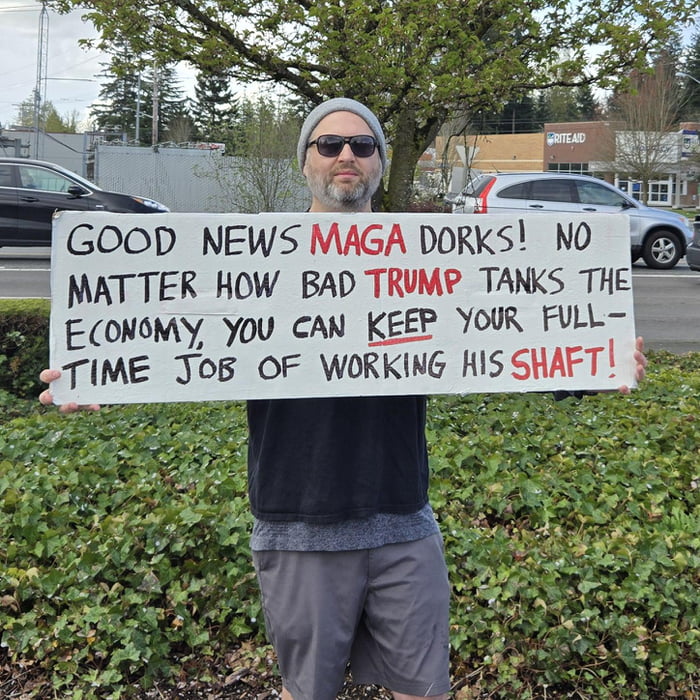 GOOD NEWS MAGA DORKS! NO
MATTER HOW BAD TRUMP TANKS THE
ECONOMY, YOU CAN KEEP YOUR FULL-
TIME JOB OF WORKING HIS SHAFT!
RITE AID